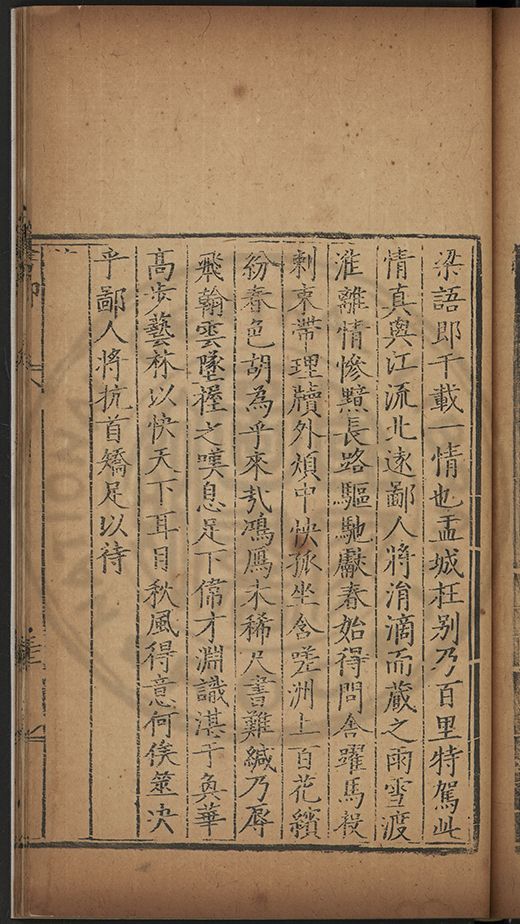 梁語即千載一情也盂城枉别乃百里特駕此
情真與江流北遠鄙人將涓滴而藏之雨雪渡
淮離情慘黯長路驅馳獻春始得問舍躍馬投
刺束帶理牘外煩中怏孤坐含嗟洲上百花繽
紛春色胡為乎來㢤鴻鴈未稀尺書難緘乃辱
飛翰雲墜握之嘆息足下偉才淵識湛于奐華
高步藝林以快天下耳目秋風得意何俟筮决
乎鄙人將抗首矯足以待